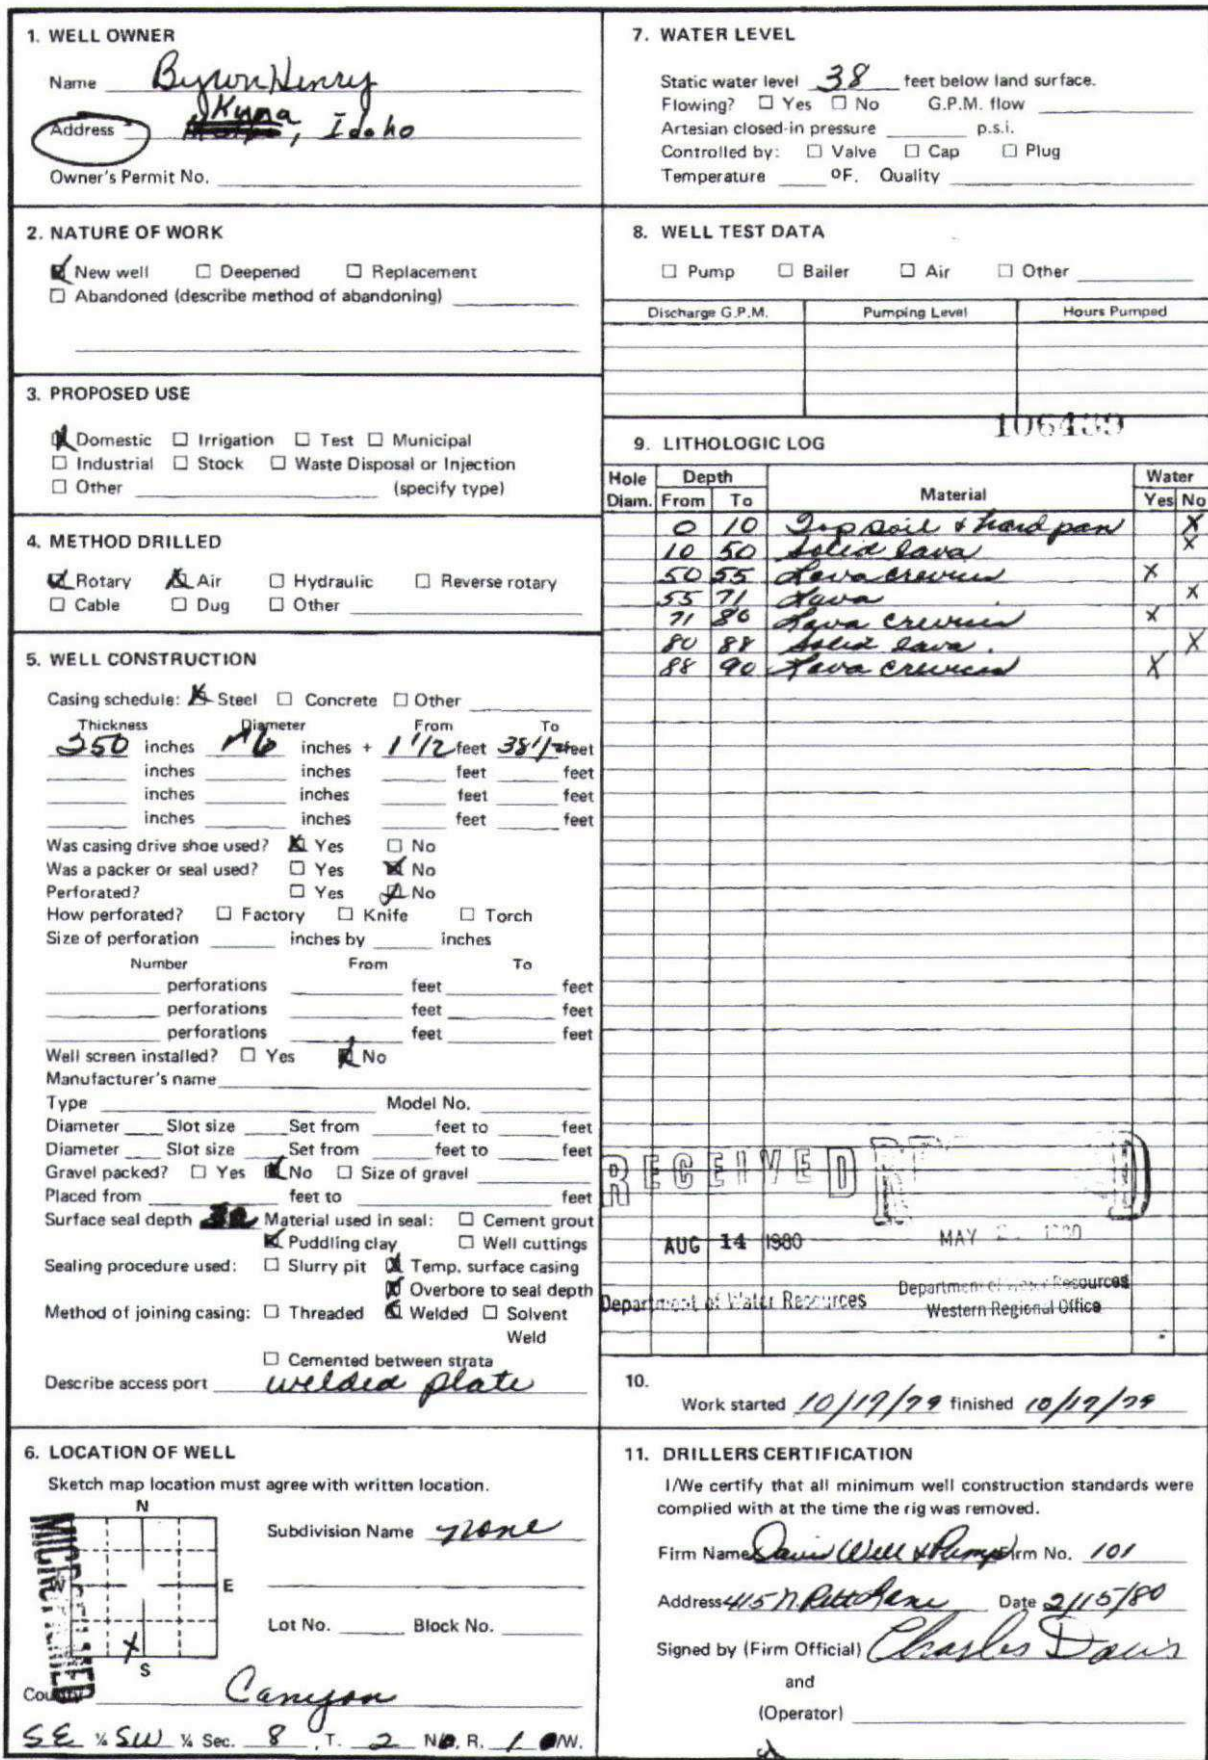 1. WELL OWNER
Name Byron Henry
Kuna
Address , Idaho
Owner's Permit No.
2. NATURE OF WORK
New well Deepened Replacement
Abandoned (describe method of abandoning)
3. PROPOSED USE
Domestic Irrigation Test Municipal
Industrial Stock Waste Disposal or Injection
Other (specify type)
4. METHOD DRILLED
Rotary Air Hydraulic Reverse rotary
Cable Dug Other
5. WELL CONSTRUCTION
Casing schedule: Steel Concrete Other
Thickness Diameter From To
250 inches 6 inches + 1 1/2 feet 38 1/2 feet
inches inches feet feet
inches inches feet feet
inches inches feet feet
Was casing drive shoe used? Yes No
Was a packer or seal used? Yes No
Perforated? Yes No
How perforated? Factory Knife Torch
Size of perforation inches by inches
Number From To
perforations feet feet
perforations feet feet
perforations feet feet
Well screen installed? Yes No
Manufacturer's name
Type Model No.
Diameter Slot size Set from feet to feet
Diameter Slot size Set from feet to feet
Gravel packed? Yes No Size of gravel
Placed from feet to feet
Surface seal depth Material used in seal: Cement grout
Puddling clay Well cuttings
Sealing procedure used: Slurry pit Temp. surface casing
Overbore to seal depth
Method of joining casing: Threaded Welded Solvent
Weld
Cemented between strata
Describe access port welded plate
6. LOCATION OF WELL
Sketch map location must agree with written location.
N
Subdivision Name none
W E
Lot No. Block No.
X
S
MICROFILMED
County Canyon
SE ¼ SW ¼ Sec. 8, T. 2 N, R. 1 W.
7. WATER LEVEL
Static water level 38 feet below land surface.
Flowing? Yes No G.P.M. flow
Artesian closed-in pressure p.s.i.
Controlled by: Valve Cap Plug
Temperature ºF. Quality
8. WELL TEST DATA
Pump Bailer Air Other
Discharge G.P.M. Pumping Level Hours Pumped
106439
9. LITHOLOGIC LOG
Hole Depth Water
Diam. From To Material Yes No
0 10 Top soil & hard pan X
10 50 Solid lava X
50 55 Lava crevices X
55 71 Lava X
71 80 Lava crevices X
80 88 Solid lava. X
88 90 Lava crevices X
RECEIVED
AUG 14 1980
Department of Water Resources
MAY 1980
Department of Water Resources
Western Regional Office
10.
Work started 10/17/79 finished 10/17/79
11. DRILLERS CERTIFICATION
I/We certify that all minimum well construction standards were
complied with at the time the rig was removed.
Firm Name Davis Well & Pump Firm No. 101
Address 415 N. Lane Date 2/15/80
Signed by (Firm Official) Charles Davis
and
(Operator)